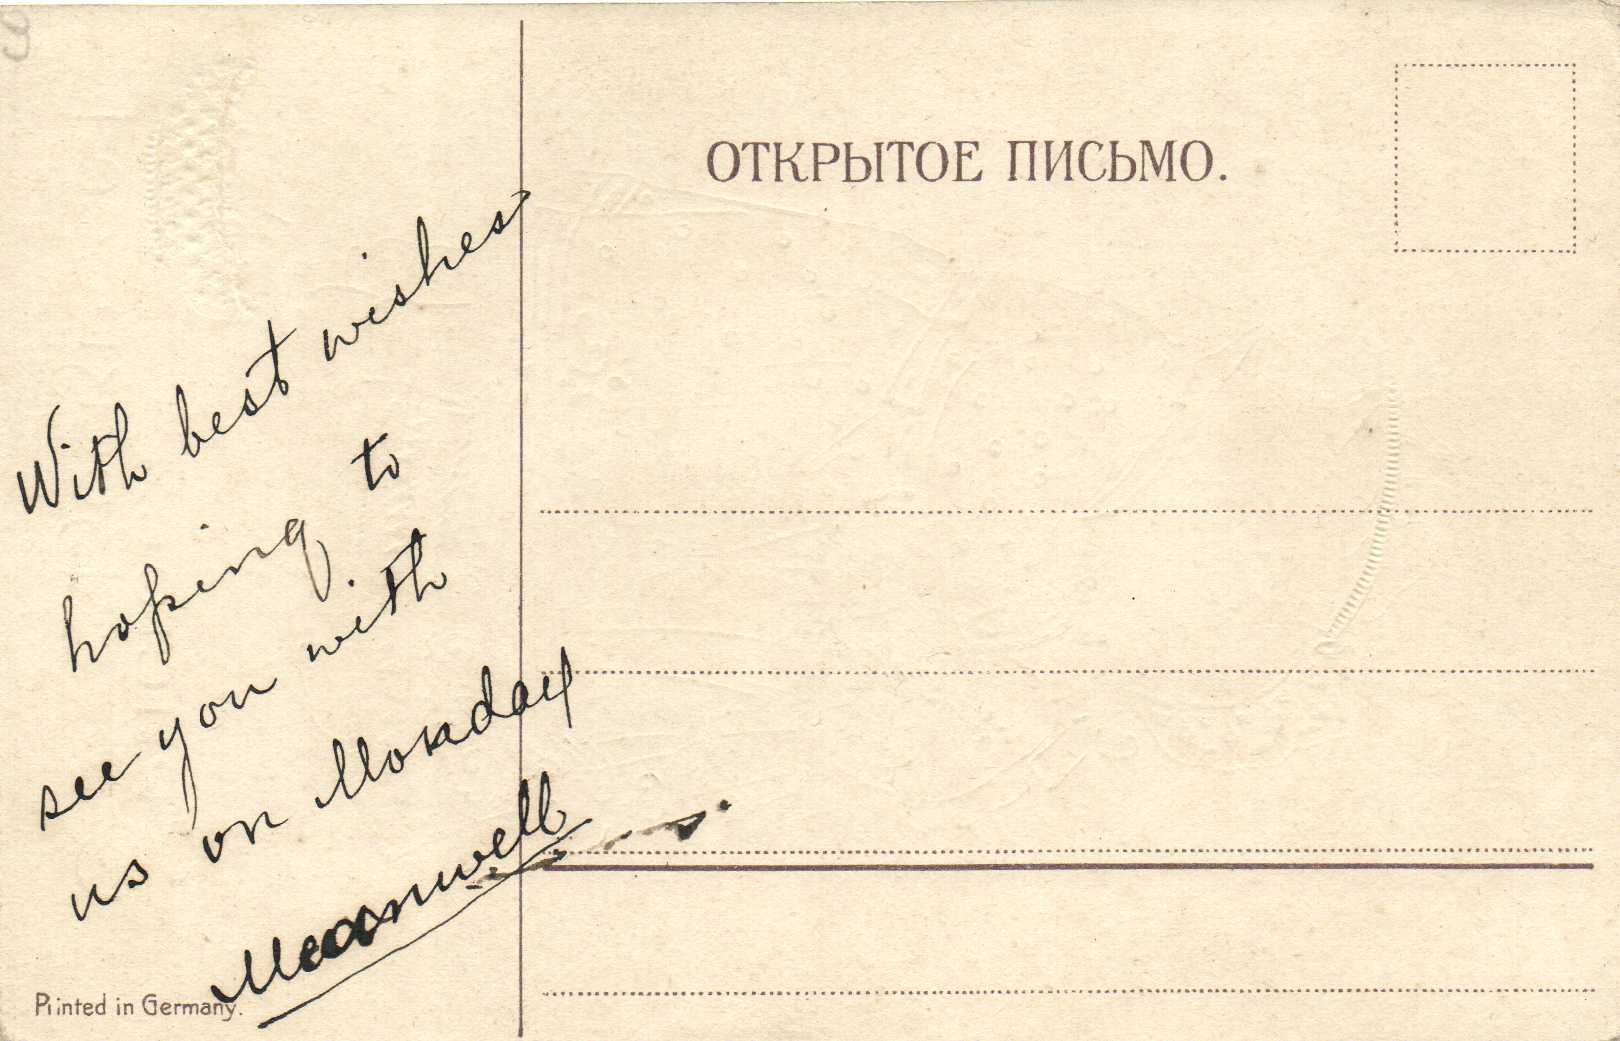 ОТКРЫТОЕ ПИСЬМО.
With best wishes
hoping to
see you with
us on Monday
Meanwell
Printed in Germany.